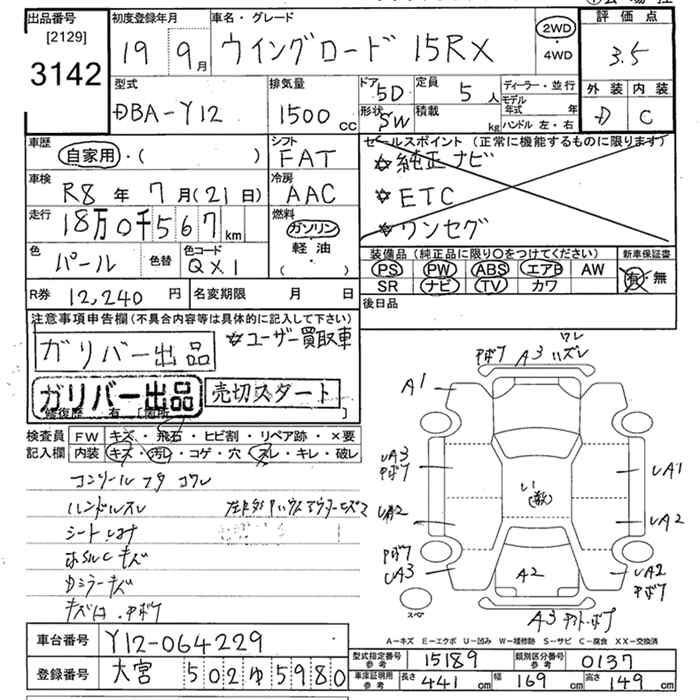 出品番号
[2129]
3142
初度登録年月
19 9月
車名・グレード
ウイングロード 15RX
2WD
・
4WD
評価点
3.5
外装 内装
D C
型式
DBA-Y12
排気量
1500cc
ドア
5D
形状
SW
定員
5人
積載
kg
ディーラー・並行
モデル年式 年
ハンドル 左・右
車歴
自家用・( )
シフト
FAT
セールスポイント (正常に機能するものに限ります)
☆純正ナビ
☆ETC
☆ワンセグ
車検
R8年7月(21日)
冷房
AAC
走行
18万0千567km
燃料
ガソリン
軽油
( ・ )
色
パール
色替
色コード
QX1
装備品 (純正品に限り○をつけてください)
PS PW ABS エアB AW
SR ナビ TV カワ
新車保証書
有・無
R券 12,240円
名変期限 月 日
後日品
注意事項申告欄(不具合内容等は具体的に記入して下さい)
ガリバー出品
☆ユーザー買取車
ガリバー出品
売切スタート
修復歴 有 [箇所 ]
検査員記入欄
FW キズ・飛石・ヒビ割・リペア跡・×要
内装 キズ・汚レ・コゲ・穴・スレ・キレ・破レ
コンソールフタ コワレ
ハンドルスレ
シート
キズ
ミラーキズ
ワレ
A3
A1
A3
A1
A2
A2
A3
A2
A2
A3
スペア
A-キズ E-エクボ U-凹み W-補修跡 S-サビ C-腐食 XX-交換済
車台番号
Y12-064229
登録番号
大宮 502 ゆ 5980
型式指定番号
参考
15189
類別区分番号
参考
0137
車庫証明用
参考
長さ 441cm 幅 169cm 高さ 149cm